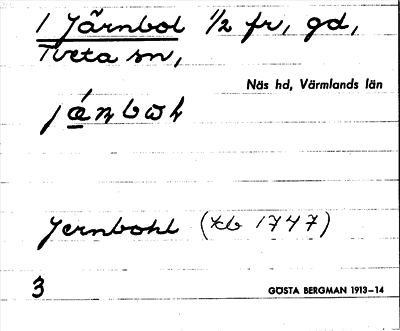 1 Järnbol 1/2 fr, gd,
Tveta sn,
Näs hd, Värmlands län
Jernbohl (kb 1747)
3
GÖSTA BERGMAN 1913–14